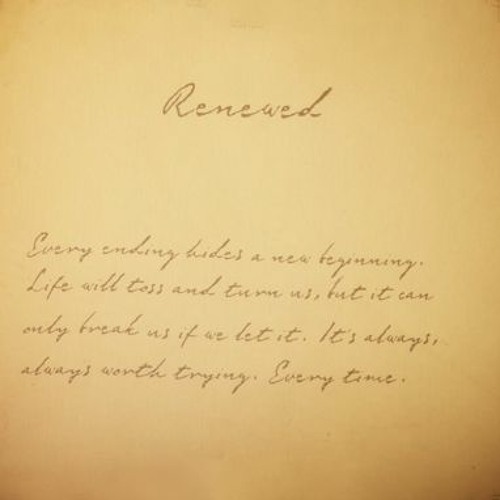 Renewed
Every ending hides a new beginning.
Life will toss and turn us, but it can
only break us if we let it. It's always,
always worth trying. Every time.